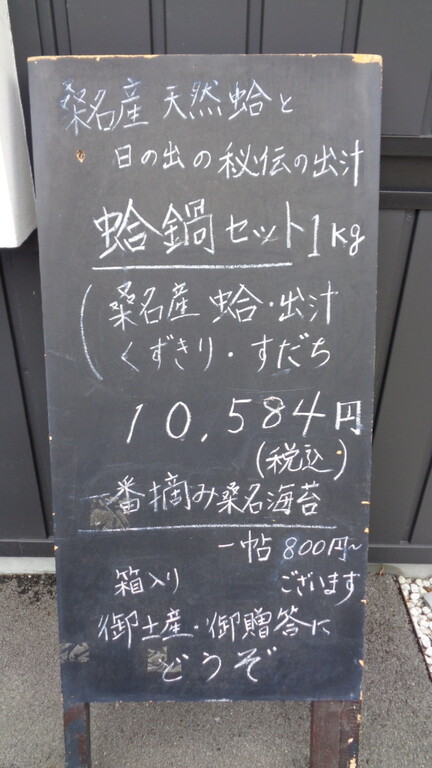 桑名産 天然蛤と
日の出の秘伝の出汁
蛤鍋セット1kg
(桑名産 蛤・出汁
くずきり・すだち
10,584円
(税込)
一番摘み桑名海苔
一帖 800円~
箱入り ございます
御土産・御贈答に
どうぞ